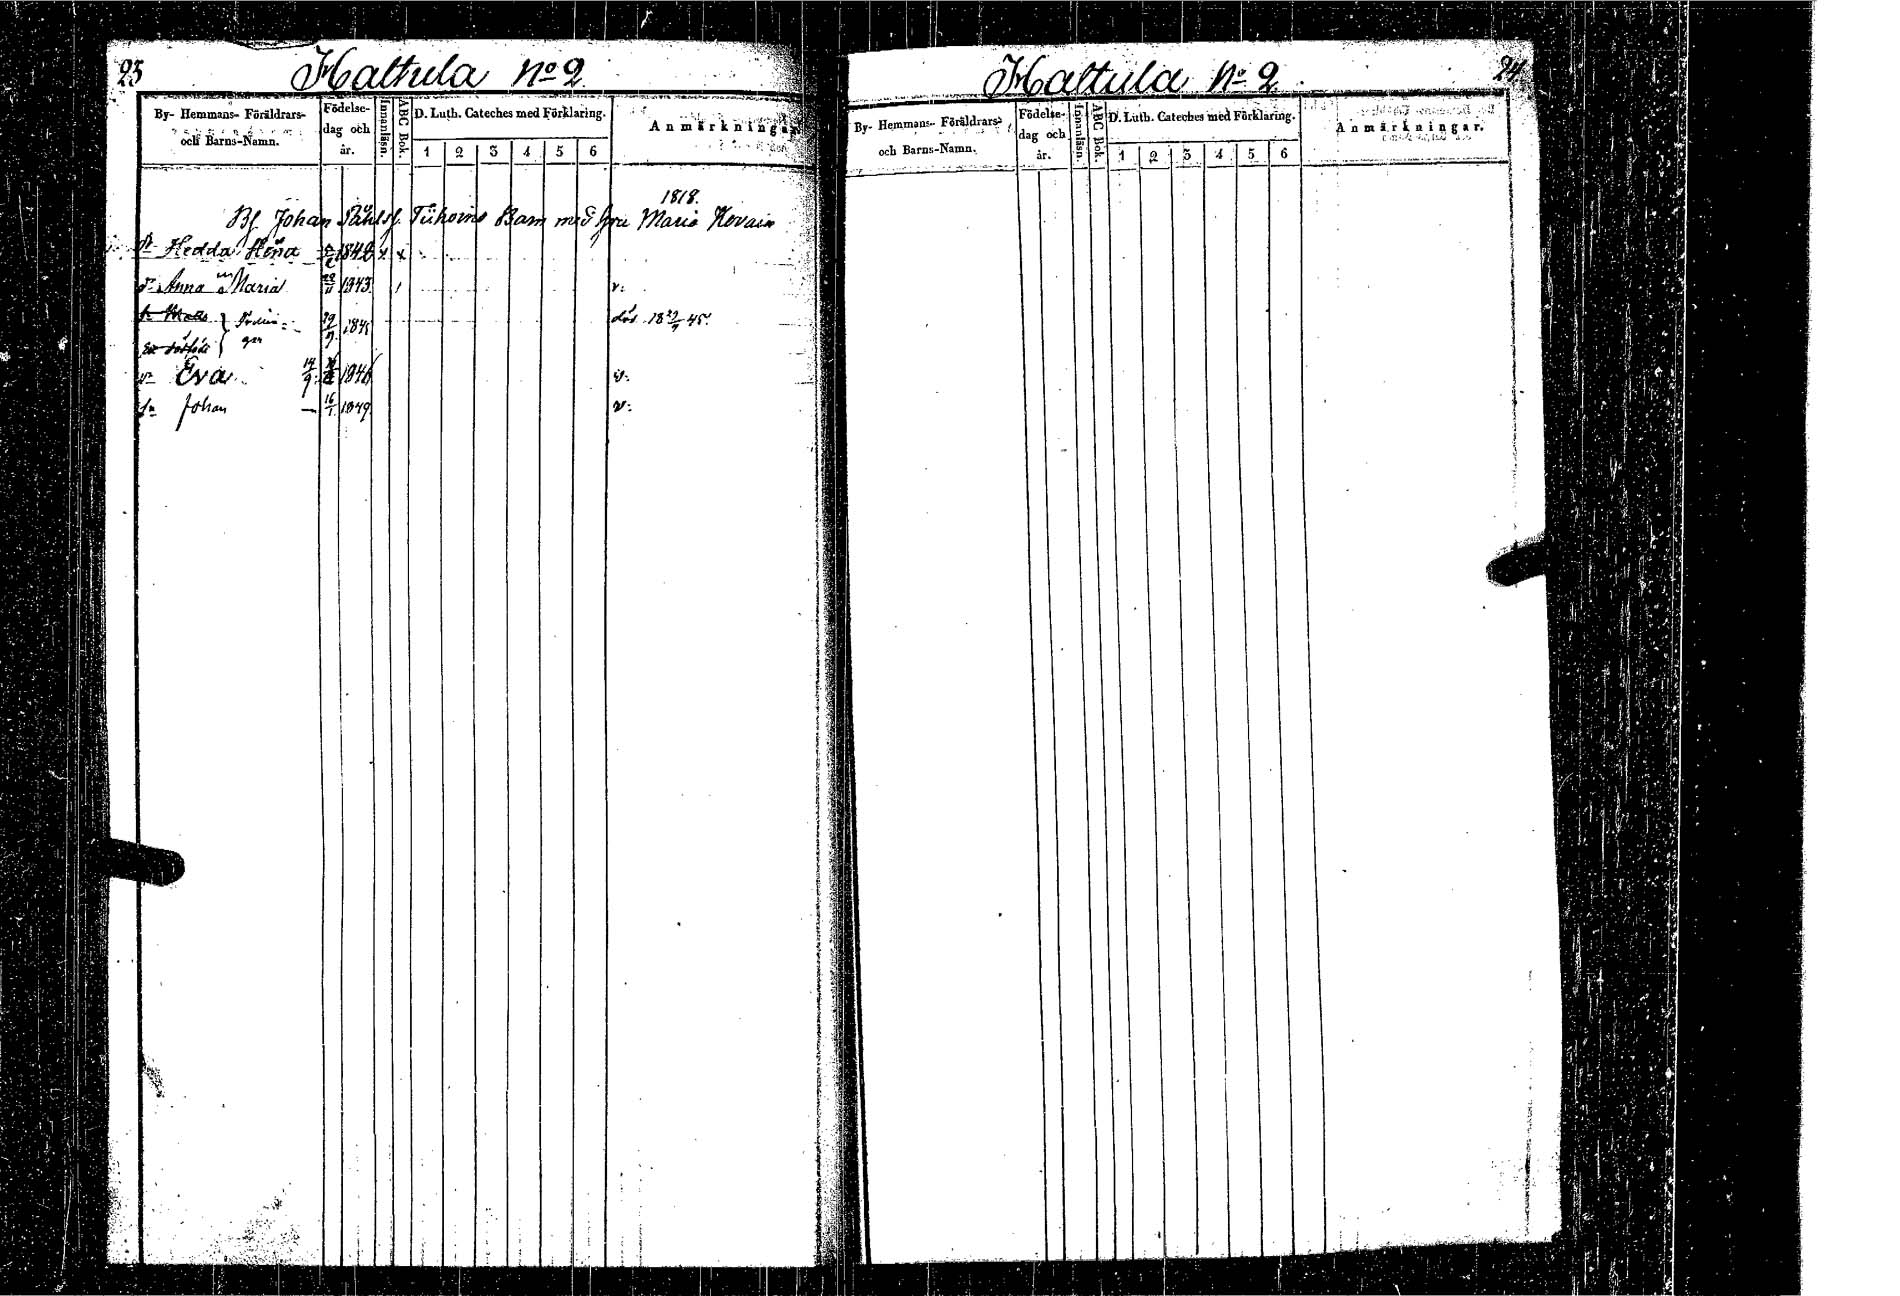 23
Haltula No 2
By- Hemmans- Föräldrars-
och Barns-Namn.
Födelse-
dag och
år.
Innanläsn.
ABC Bok.
D. Luth. Cateches med Förklaring.
1 2 3 4 5 6
Anmärkningar
1818.
Johan Påhlsf. Barn med Maria
Hedda 1842 x x
Anna Maria 1843 v:
död 45
Eva 14/9 1846 v:
Johan 16/1 1849 v:
24
Haltula No 2
By- Hemmans- Föräldrars-
och Barns-Namn.
Födelse-
dag och
år.
Innanläsn.
ABC Bok.
D. Luth. Cateches med Förklaring.
1 2 3 4 5 6
Anmärkningar.